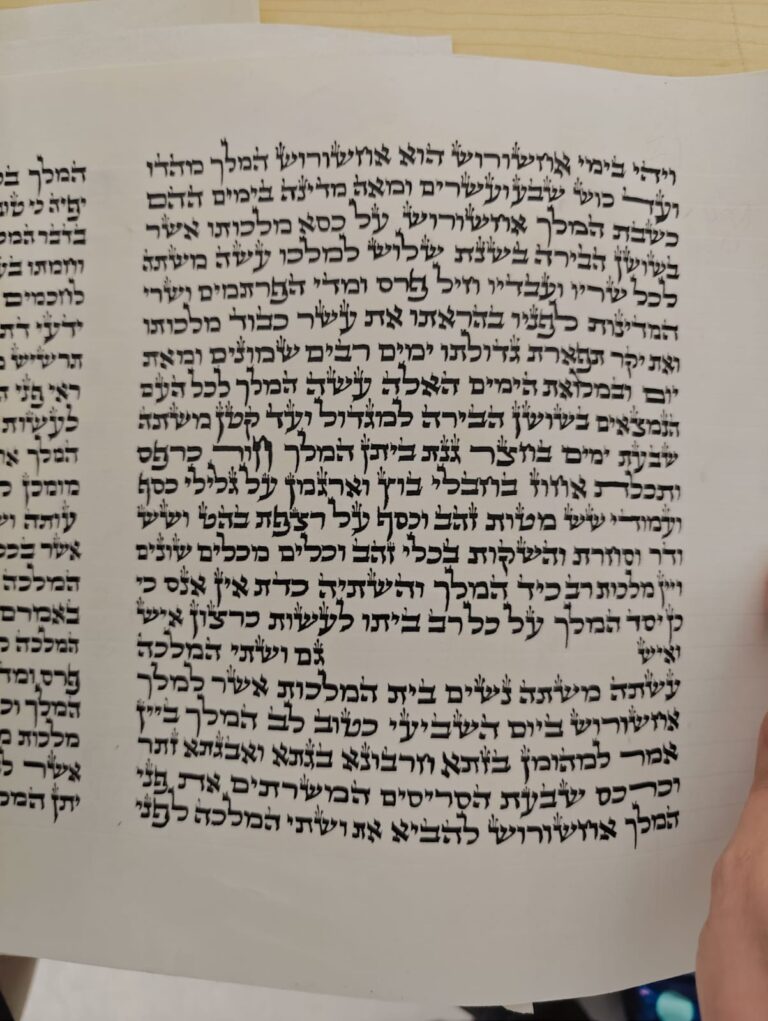 ויהי בימי אחשורוש הוא אחשורוש המלך מהדו
ועד כוש שבע ועשרים ומאה מדינה בימים ההם
כשבת המלך אחשורוש על כסא מלכותו אשר
בשושן הבירה בשנת שלוש למלכו עשה משתה
לכל שריו ועבדיו חיל פרס ומדי הפרתמים ושרי
המדינות לפניו בהראתו את עשר כבוד מלכותו
ואת יקר תפארת גדולתו ימים רבים שמונים ומאת
יום ובמלואת הימים האלה עשה המלך לכל העם
הנמצאים בשושן הבירה למגדול ועד קטן משתה
שבעת ימים בחצר גנת ביתן המלך חור כרפס
ותכלת אחוז בחבלי בוץ וארגמן על גלילי כסף
ועמודי שש מטות זהב וכסף על רצפת בהט ושש
ודר וסחרת והשקות בכלי זהב וכלים מכלים שונים
ויין מלכות רב כיד המלך והשתיה כדת אין אנס כי
כן יסד המלך על כל רב ביתו לעשות כרצון איש
ואיש גם ושתי המלכה
עשתה משתה נשים בית המלכות אשר למלך
אחשורוש ביום השביעי כטוב לב המלך ביין
אמר למהומן בזתא חרבונא בגתא ואבגתא זתר
וכרכס שבעת הסריסים המשרתים את פני
המלך אחשורוש להביא את ושתי המלכה לפני
המלך
יפיה כי
בדבר
וחמתו
לחכמים
ידעי דת
תרשיש
ראי פני
לעשות
המלך
מומכן
עותה
אשר
המלכה
באמרם
המלכה
פרס
המלך
מלכות
אשר
יתן